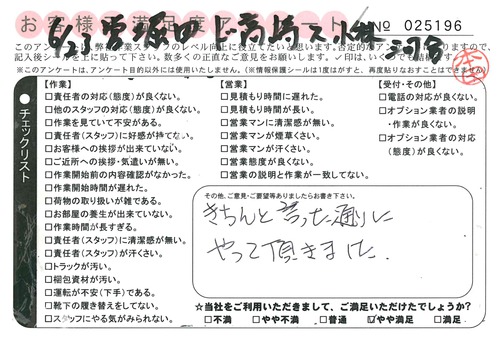 お客様満足度アンケート
No 025196
このアンケートは、弊社作業スタッフのレベル向上に役立てたいと思います。否定的なアンケートになりますので、
記入後シールを上に貼って下さい。数多くの正直なご意見をお願いします。✓印は、いくつでも結構です。
※このアンケートは、アンケート目的以外には使用いたしません。(※情報保護シールは1度はがすと、再度貼りなおすことはできません)
チェックリスト
【作業】
□責任者の対応(態度)が良くない。
□他のスタッフの対応(態度)が良くない。
□作業を見ていて不安がある。
□責任者(スタッフ)に好感が持てない。
□お客様への挨拶が出来ていない。
□ご近所への挨拶・気遣いが無い。
□作業開始前の内容確認がなかった。
□作業開始時間が遅れた。
□荷物の取り扱いが雑である。
□お部屋の養生が出来ていない。
□作業時間が長すぎる。
□責任者(スタッフ)に清潔感が無い。
□責任者(スタッフ)が汗くさい。
□トラックが汚い。
□梱包資材が汚い。
□運転が不安(下手)である。
□靴下の履き替えをしてない。
□スタッフにやる気がみられない。
【営業】
□見積もり時間に遅れた。
□見積もり時間が長い。
□営業マンに清潔感が無い。
□営業マンが煙草くさい。
□営業マンが汗くさい。
□営業態度が良くない。
□営業の説明と作業が一致してない。
【受付・その他】
□電話の対応が良くない。
□オプション業者の説明
・作業が良くない。
□オプション業者の対応
(態度)が良くない。
その他、ご意見・ご要望等ありましたらお書き下さい。
きちんと言った通りに
やって頂きました
☆当社をご利用いただきまして、ご満足いただけたでしょうか?
□不満 □やや不満 □普通 ☑やや満足 □満足